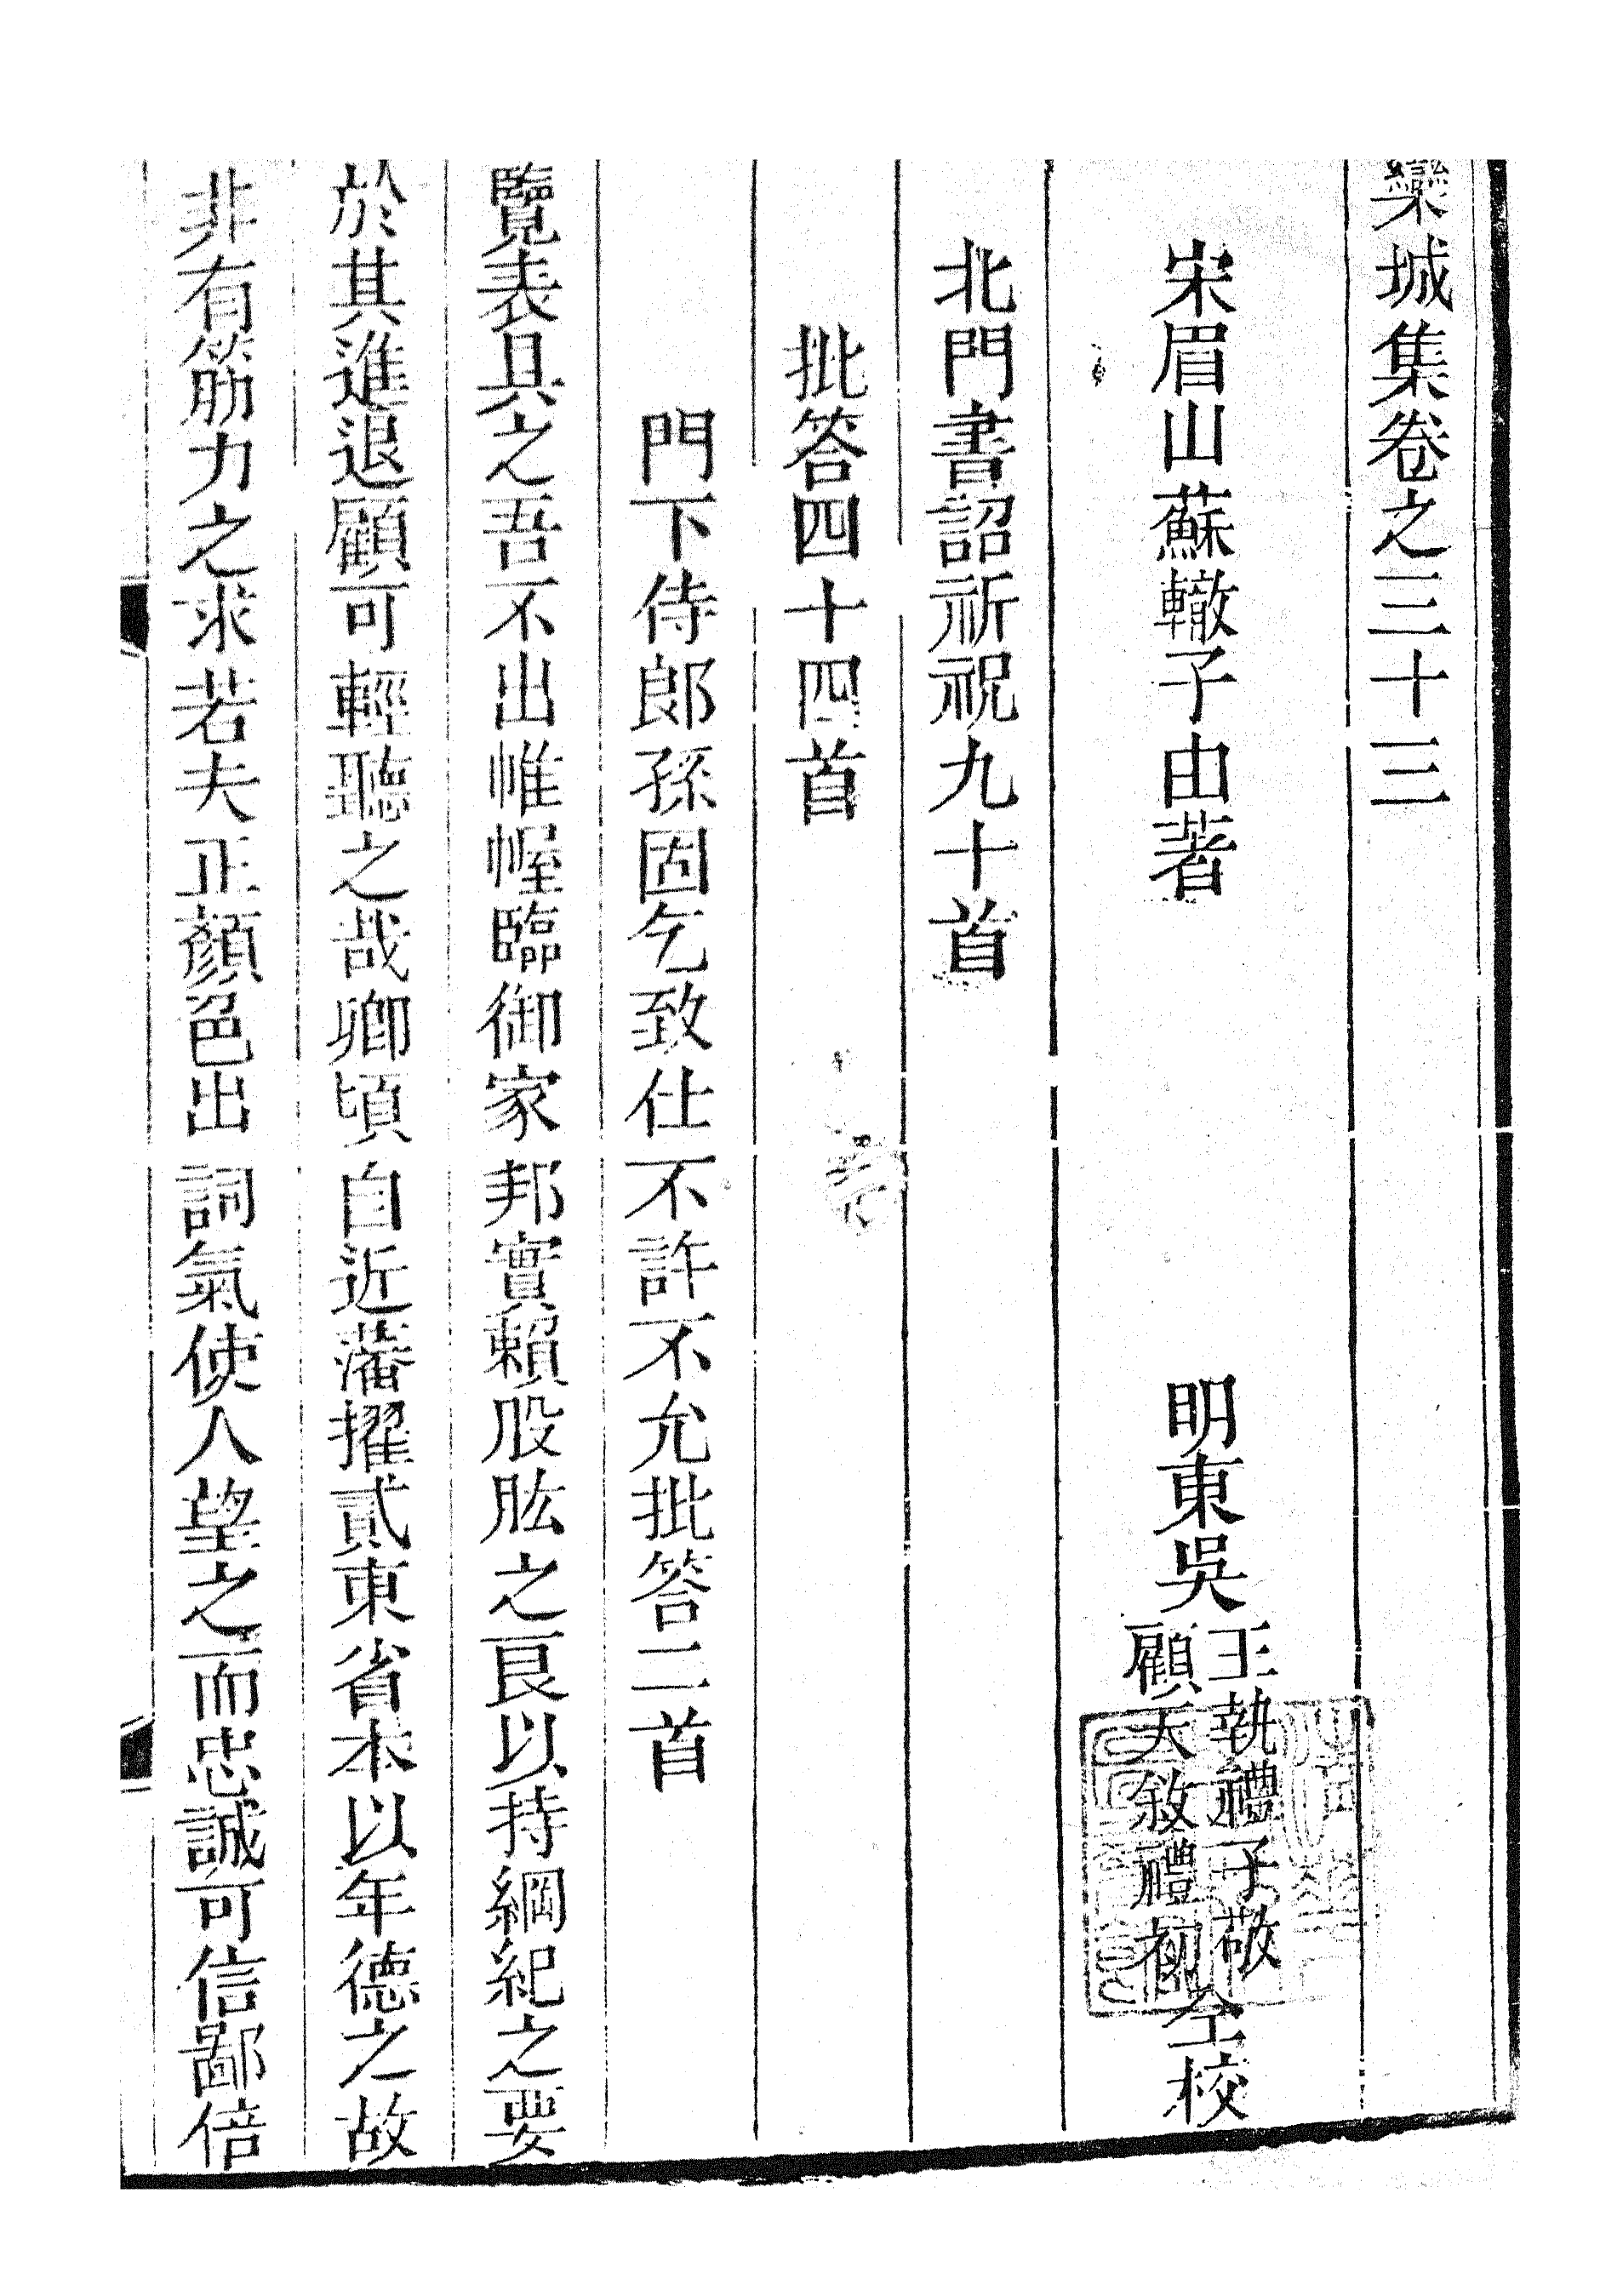 欒城集卷之三十三
宋眉山蘇轍子由著
明東吳
王執禮子敬
顧天敘禮初
仝校
北門書詔祈祝九十首
批答四十四首
門下侍郎孫固乞致仕不許不允批答二首
覽表具之吾不出帷幄臨御家邦實賴股肱之良以持綱紀之要
於其進退顧可輕聽之哉卿頃自近藩擢貳東省本以年德之故
非有筋力之求若夫正顏色出詞氣使人望之而忠誠可信鄙倍